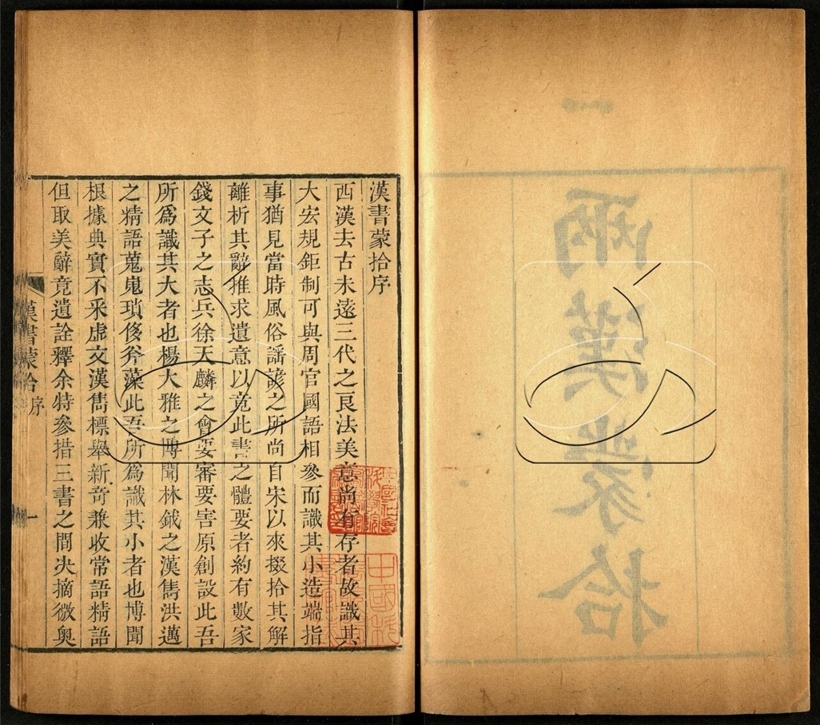 兩漢蒙拾
漢書蒙拾序
西漢去古未遠三代之良法美意尚有存者故識其
大宏規鉅制可與周官國語相參而識其小造端指
事猶見當時風俗謠諺之所尚自宋以來掇拾其解
離析其辭推求遺意以竟此書之體要者約有數家
錢文子之志兵徐天麟之會要審要害原創設此吾
所爲識其大者也楊大雅之博聞林鉞之漢雋洪邁
之精語蒐嵬瑣俊斧藻此吾所爲識其小者也博聞
根據典實不釆虛文漢雋標舉新奇兼收常語精語
但取美辭竟遺詮釋余特參措三書之間決摘微奥
漢書蒙拾序
一